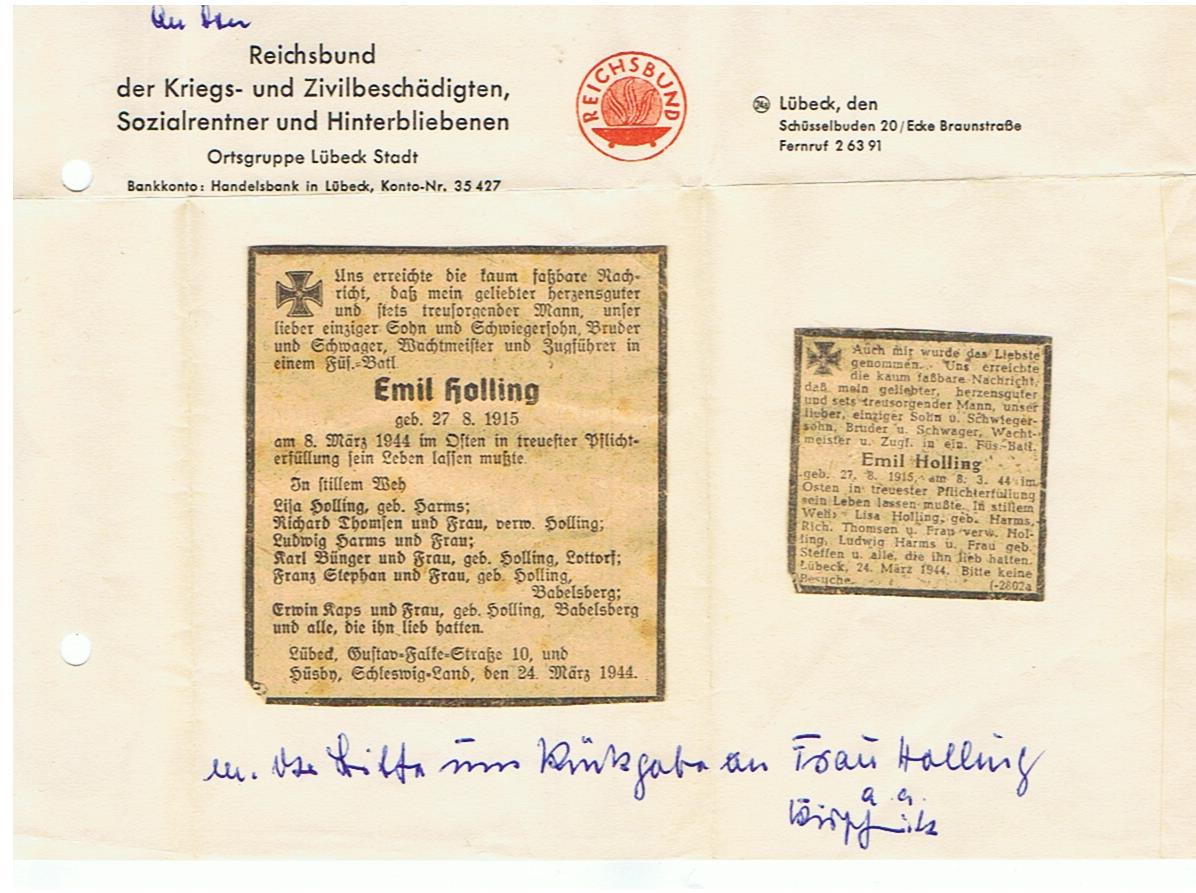 An den
Reichsbund
der Kriegs- und Zivilbeschädigten,
Sozialrentner und Hinterbliebenen
Ortsgruppe Lübeck Stadt
Bankkonto: Handelsbank in Lübeck, Konto-Nr. 35 427
REICHSBUND
24a Lübeck, den
Schüsselbuden 20/Ecke Braunstraße
Fernruf 2 63 91
Uns erreichte die kaum faßbare Nach-
richt, daß mein geliebter herzensguter
und stets treusorgender Mann, unser
lieber einziger Sohn und Schwiegersohn, Bruder
und Schwager, Wachtmeister und Zugführer in
einem Füs.-Batl.
Emil Holling
geb. 27 8. 1915
am 8. März 1944 im Osten in treuester Pflicht-
erfüllung sein Leben lassen mußte.
In stillem Weh
Lisa Holling, geb. Harms;
Richard Thomsen und Frau, verw. Holling;
Ludwig Harms und Frau;
Karl Bünger und Frau, geb. Holling, Lottorf;
Franz Stephan und Frau, geb. Holling,
Babelsberg;
Erwin Kaps und Frau, geb. Holling, Babelsberg
und alle, die ihn lieb hatten.
Lübeck, Gustav-Falke-Straße 10, und
Hüsby, Schleswig-Land, den 24. März 1944.
Auch mir wurde das Liebste
genommen. Uns erreichte
die kaum faßbare Nachricht,
daß mein geliebter, herzensguter
und sets treusorgender Mann, unser
lieber, einziger Sohn u. Schwieger-
sohn, Bruder u. Schwager, Wacht-
meister u. Zugf. in ein. Füs.-Batl.
Emil Holling
geb. 27. 8. 1915, am 8. 3. 44 im
Osten in treuester Pflichterfüllung
sein Leben lassen mußte. In stillem
Weh: Lisa Holling, geb. Harms,
Rich. Thomsen u. Frau verw. Hol-
ling, Ludwig Harms u. Frau geb.
Steffen u. alle, die ihn lieb hatten.
Lübeck, 24. März 1944. Bitte keine
Besuche. (-2802a
m. der Bitte um Rückgabe an Frau Holling